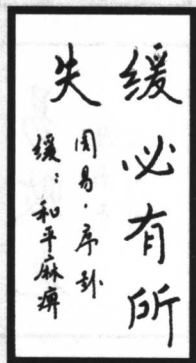 缓必有所
失
周易·序卦
缓：和平麻痹